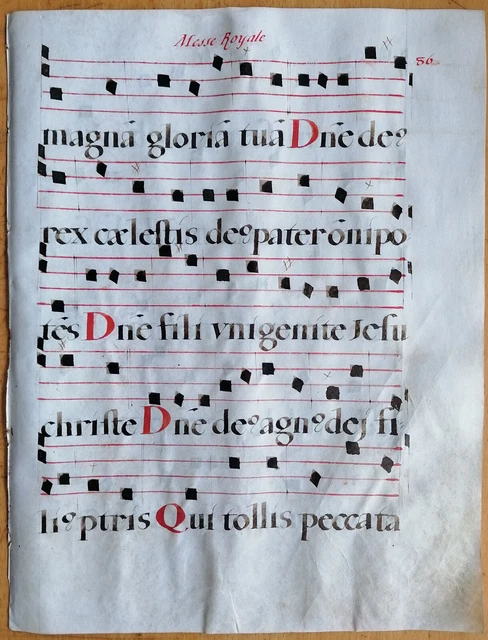 Messe Royale
86
magnā gloriā tuā Dnē deꝰ
rex cælestis deꝰ pater ōnipo
tēs Dnē fili vnigenite Jesu
christe Dnē deꝰ agnꝰ dej fi
liꝰ ptris Qui tollis peccata